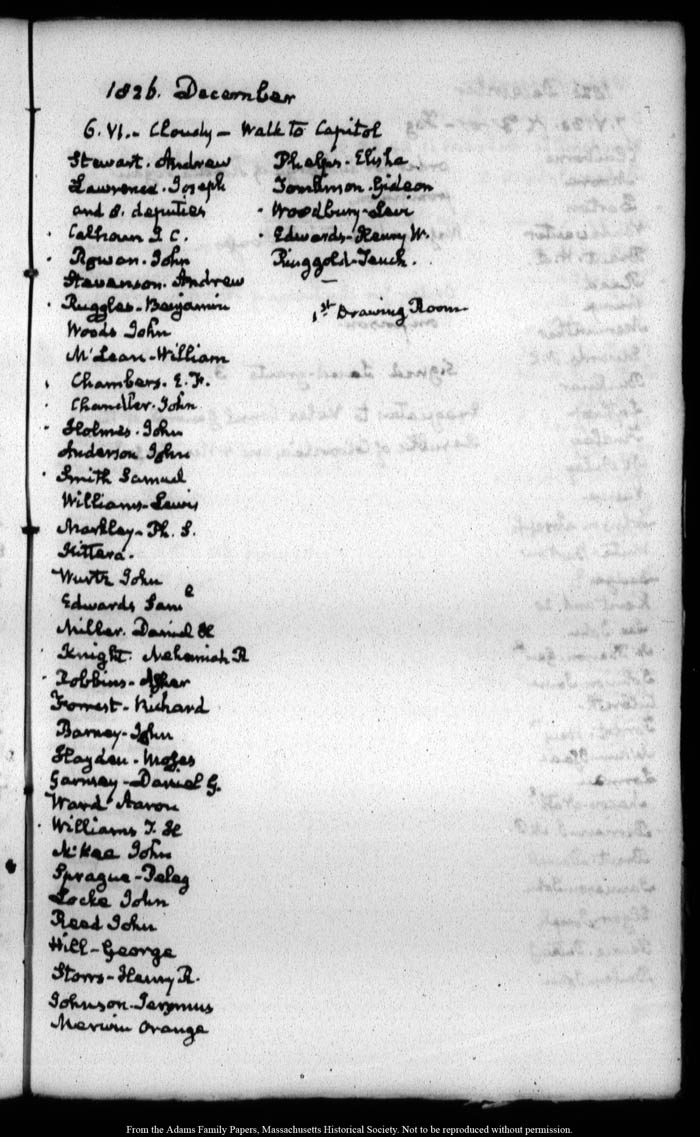 1826. December
6. VI. - Cloudy - Walk to Capitol
Stewart. Andrew
Lawrence. Joseph
and 8. deputies
· Calhoun J. C.
· Rowan. John
Stevenson. Andrew
· Ruggles - Benjamin
Woods John
McLean - William
· Chambers. E. F.
· Chandler. John
· Holmes. John
Anderson John
· Smith Samuel
Williams - Lewis
Markley - Ph. S.
Kittera.
Wurtz John
Edwards Saml
Miller. Daniel H
· Knight. Nehemiah R
· Robbins - Asher
Forrest - Richard
Barney - John
Hayden - Moses
Garnsey - Daniel G.
Ward Aaron
· Williams T. H
McKee John
Sprague - Peleg
Locke John
Reed John
Hill - George
Storrs - Henry R.
Johnson - Jeromus
Merwin Orange
Phelps - Elisha
Tomlinson. Gideon
· Woodbury - Levi
· Edwards - Henry W.
Ringgold - Tench.
1st Drawing Room.
From the Adams Family Papers, Massachusetts Historical Society. Not to be reproduced without permission.